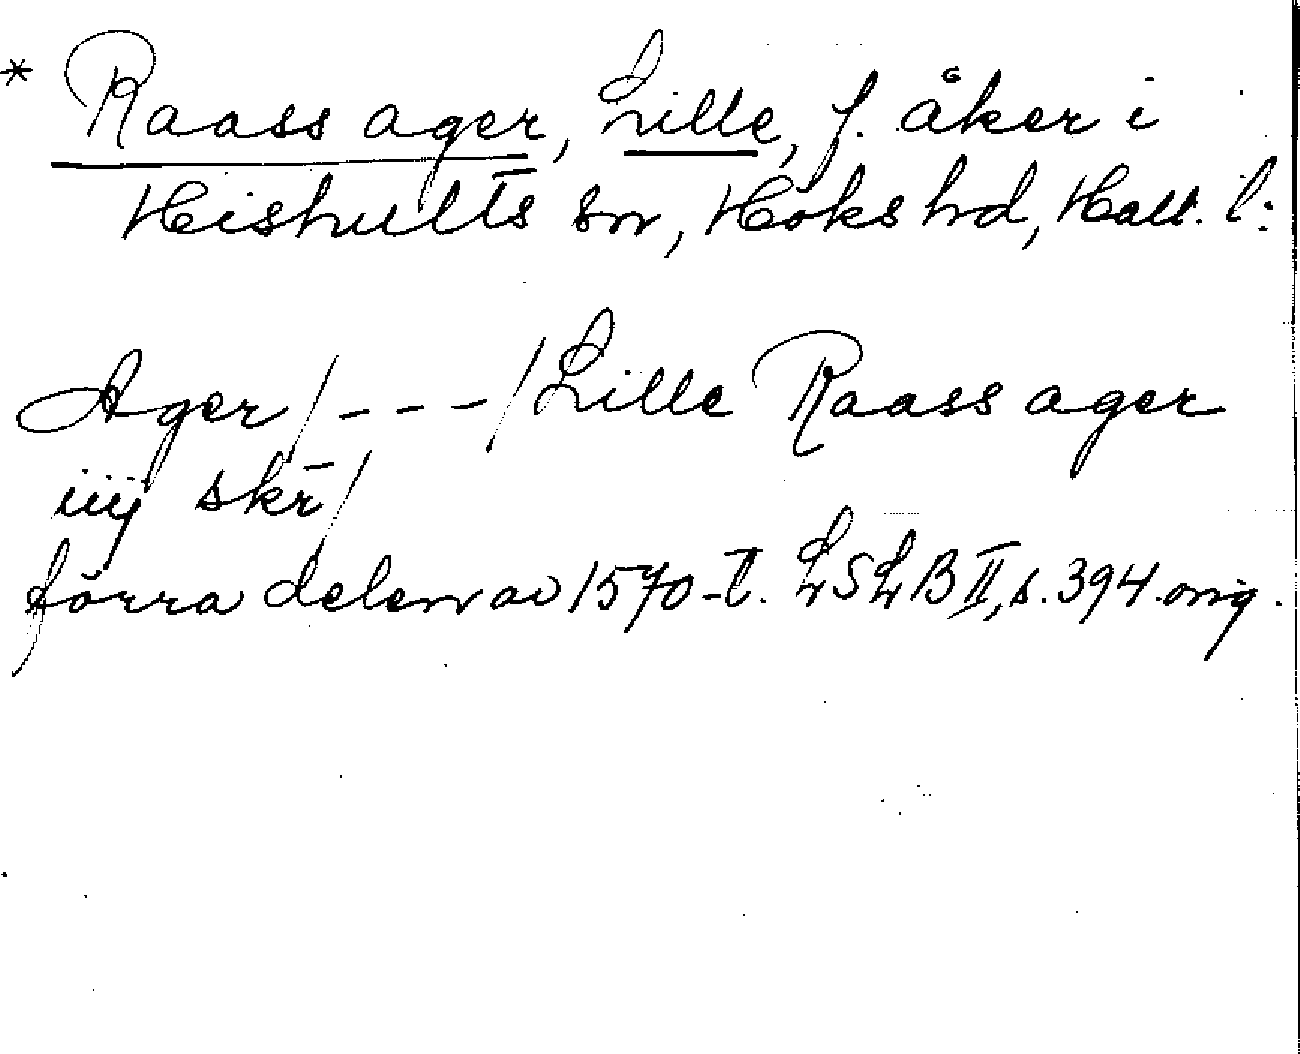 * Raass ager, Lille, f. åker i
Hishults sn, Höks hd, Hall. l:
Ager/---/Lille Raass ager
iiij skr̄/
förra delen av 1570-t. LSLB II, s. 394. orig.